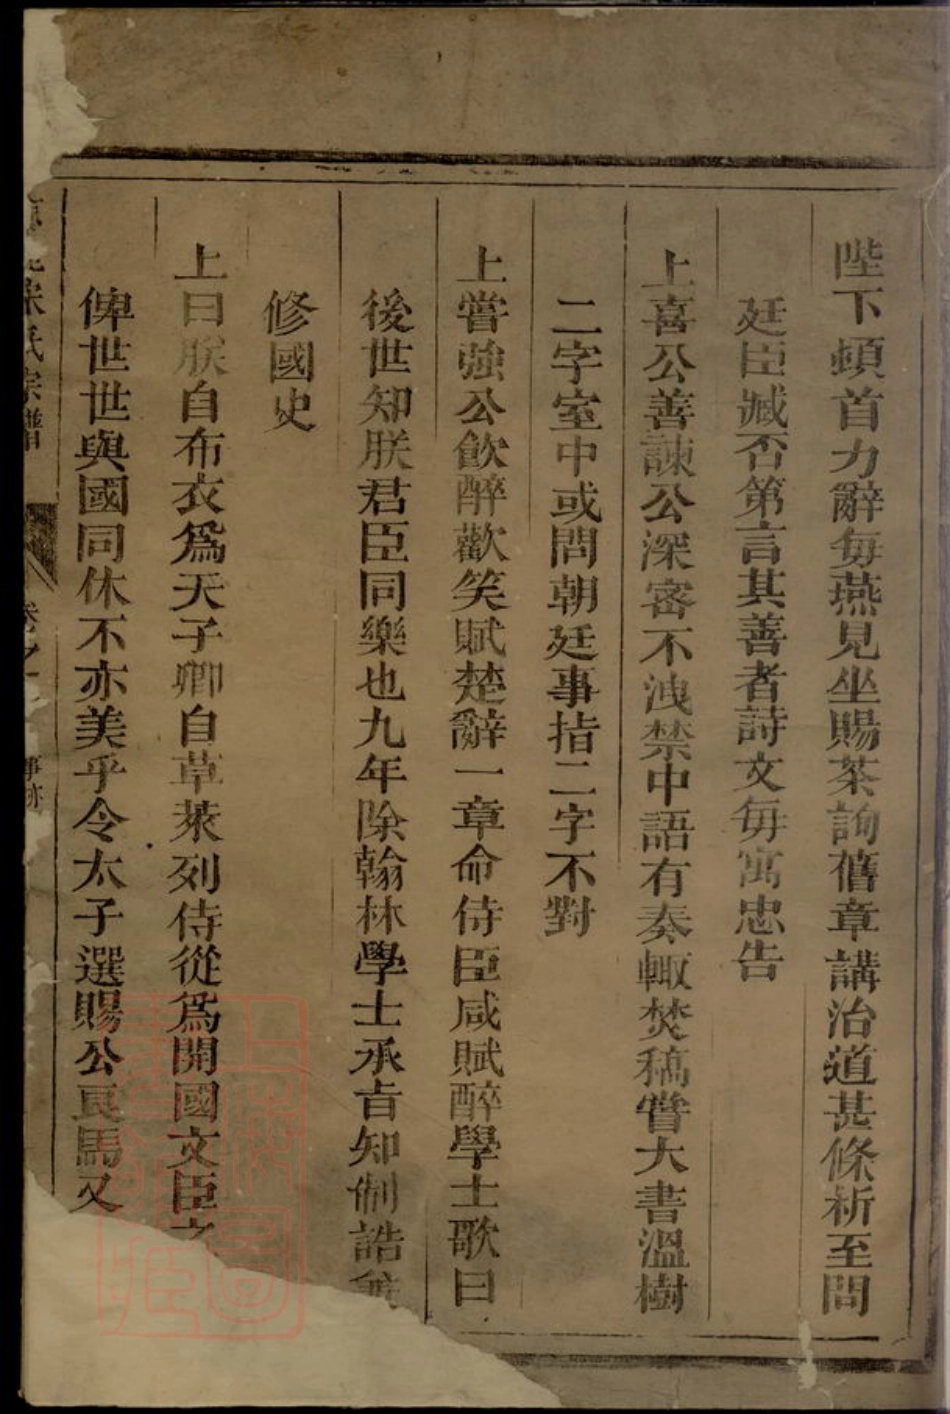 陛下頓首力辭每燕見坐賜茶詢舊章講治道甚條析至問
廷臣臧否第言其善者詩文每寓忠告
上喜公善諫公深密不洩禁中語有奏輙焚稿嘗大書溫樹
二字室中或問朝廷事指二字不對
上嘗強公飲醉歡笑賦楚辭一章命侍臣咸賦醉學士歌曰
後世知朕君臣同樂也九年除翰林學士承㫖知制誥兼
修國史
上曰朕自布衣爲天子卿自草萊列侍從爲開國文臣之
俾世世與國同休不亦美乎令太子選賜公良馬又
宋氏宗譜
卷之一
事跡